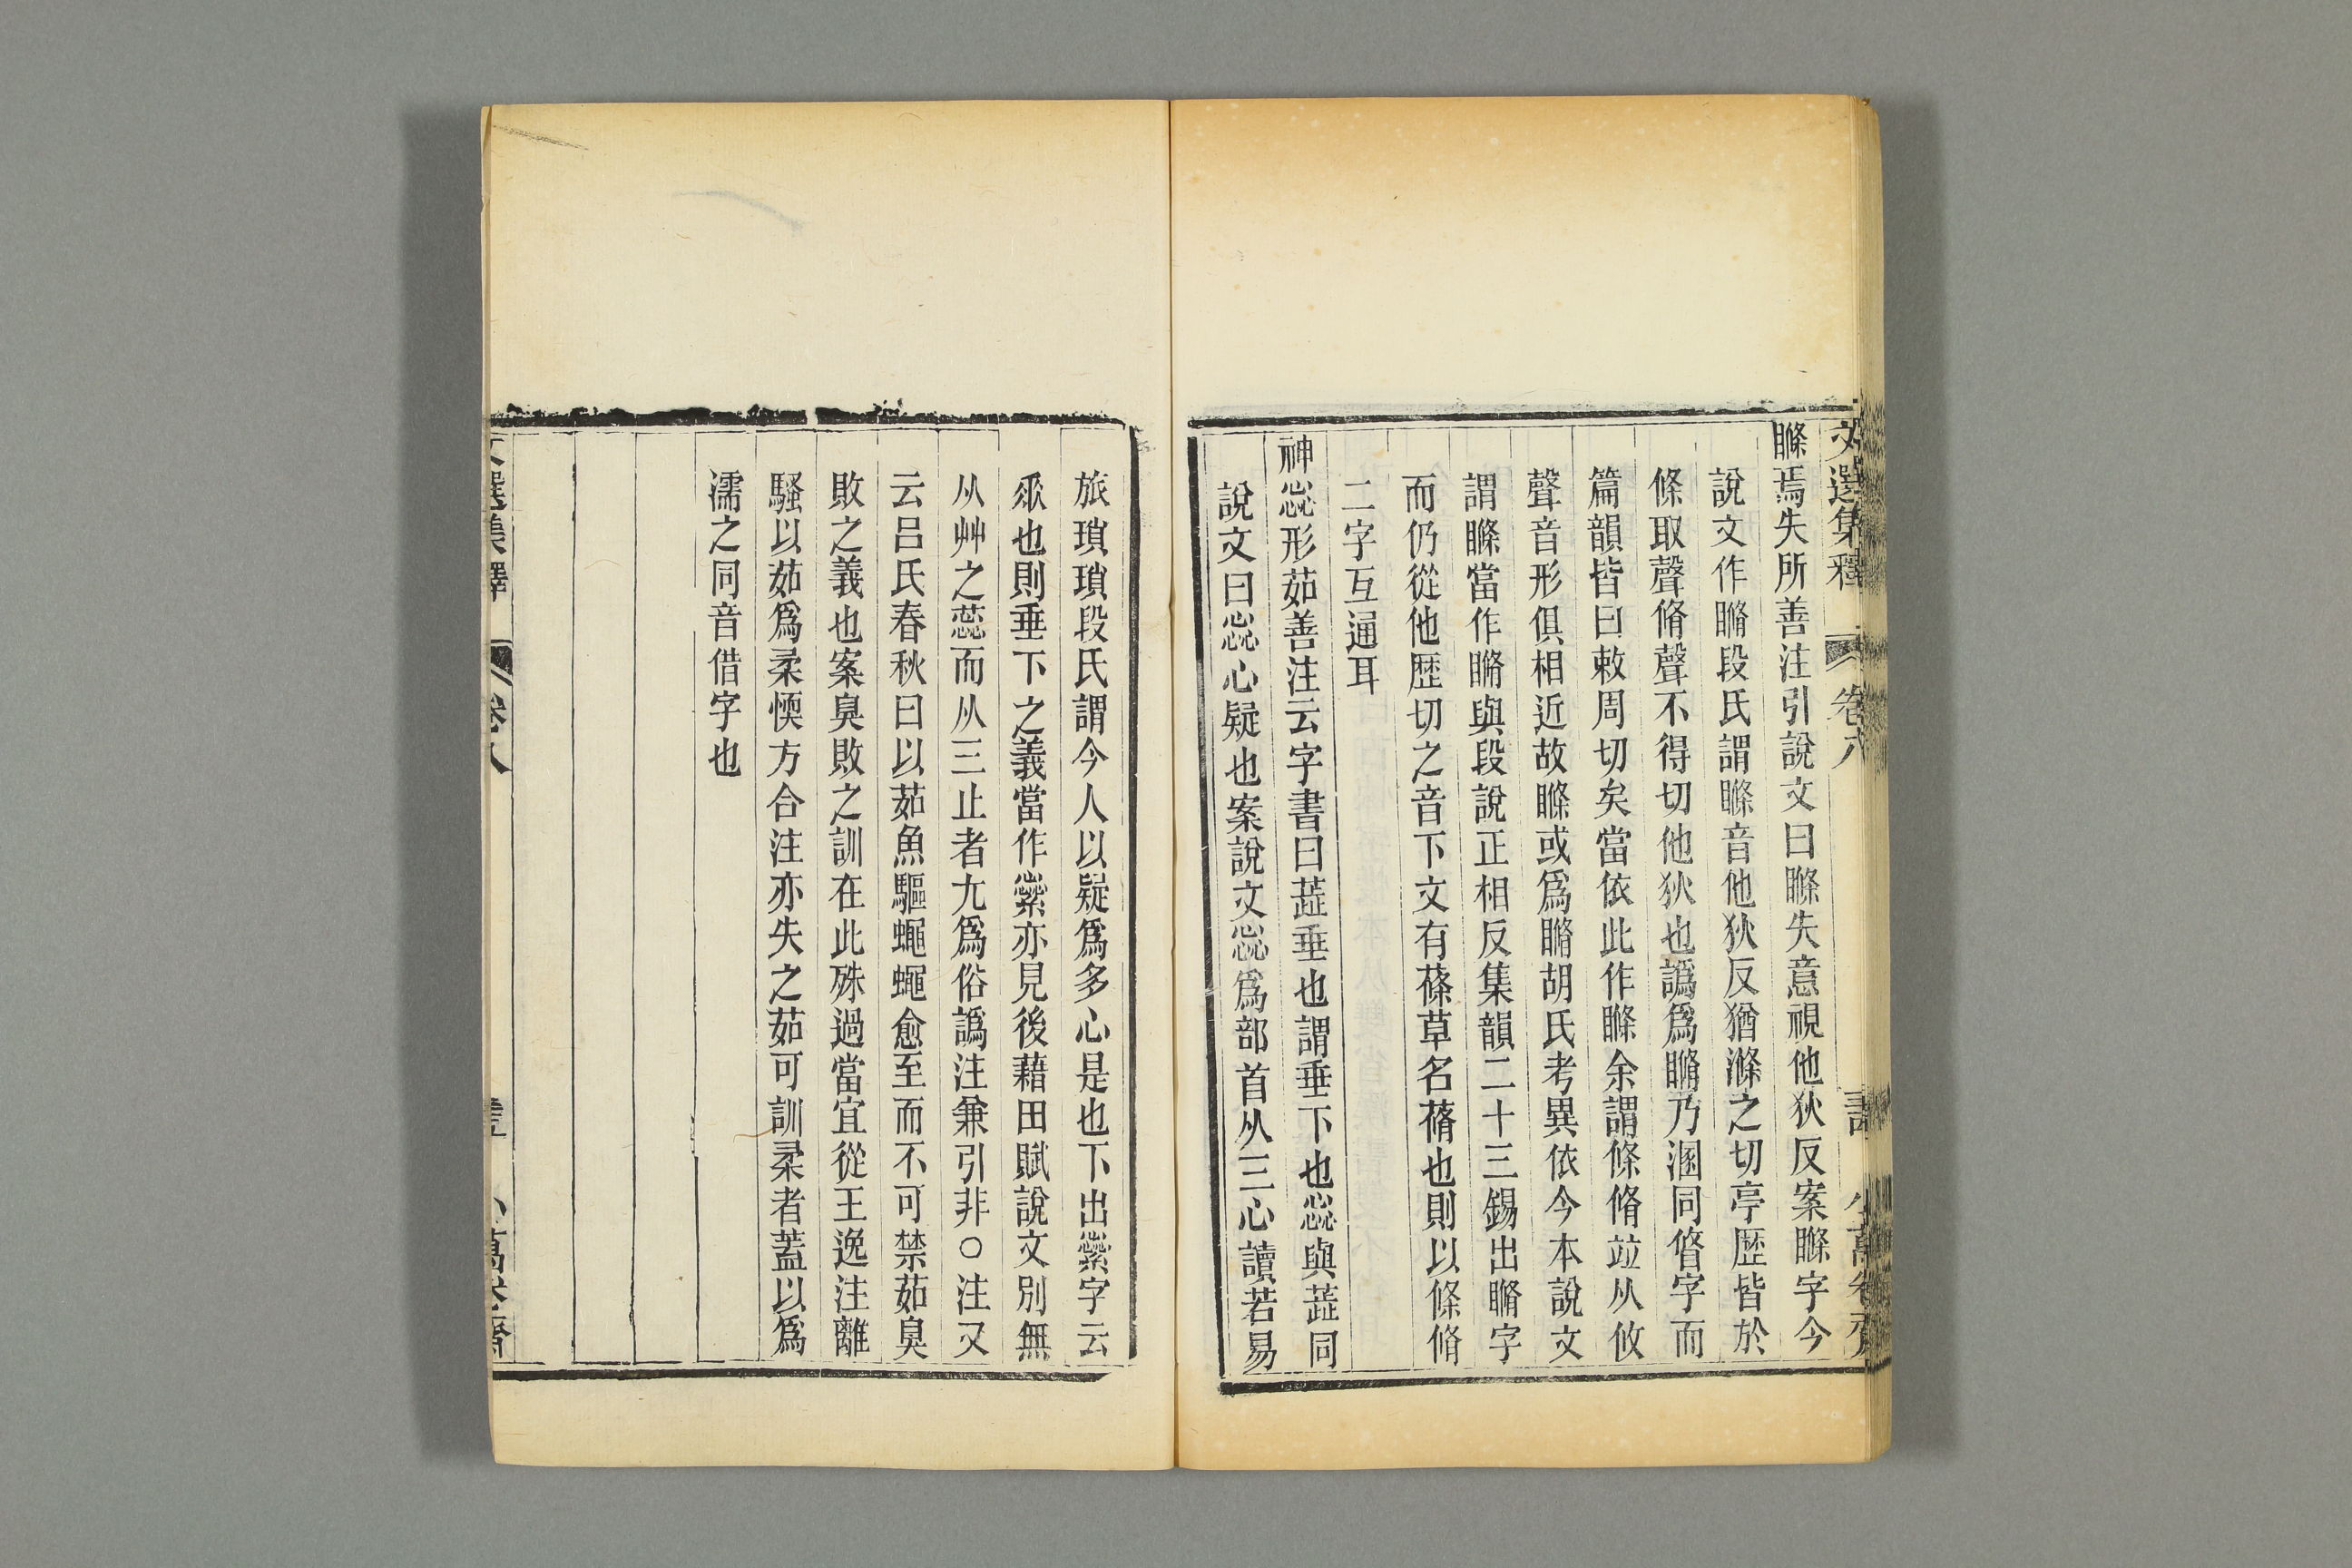 文選集釋 卷六 小萬卷齋
瞴焉失所善注引說文曰瞴失意視他狄反案瞴字今
說文作䁘段氏謂瞴音他狄反猶滌之切亭歷皆於
條取聲脩聲不得切他狄也譌爲䁘乃溷同眘字而
篇韻皆曰敕周切矣當依此作瞴余謂條脩竝从攸
聲音形俱相近故瞴或爲䁘胡氏考異依今本說文
謂瞴當作䁘與段說正相反集韻二十三錫出䁘字
而仍從他歷切之音下文有蓧草名蓨也則以條脩
二字互通耳
神惢形茹善注云字書曰蕋垂也謂垂下也惢與蕋同
說文曰惢心疑也案說文惢爲部首从三心讀若易
旅瑣瑣段氏謂今人以疑爲多心是也下出繠字云
𠂹也則垂下之義當作繠亦見後藉田賦說文別無
从艸之蕊而从三止者尢爲俗譌注兼引非○注又
云呂氏春秋曰以茹魚驅蠅蠅愈至而不可禁茹臭
敗之義也案臭敗之訓在此殊過當宜從王逸注離
騷以茹爲柔愞方合注亦失之茹可訓柔者蓋以爲
濡之同音借字也
文選集釋 卷八 小萬卷齋